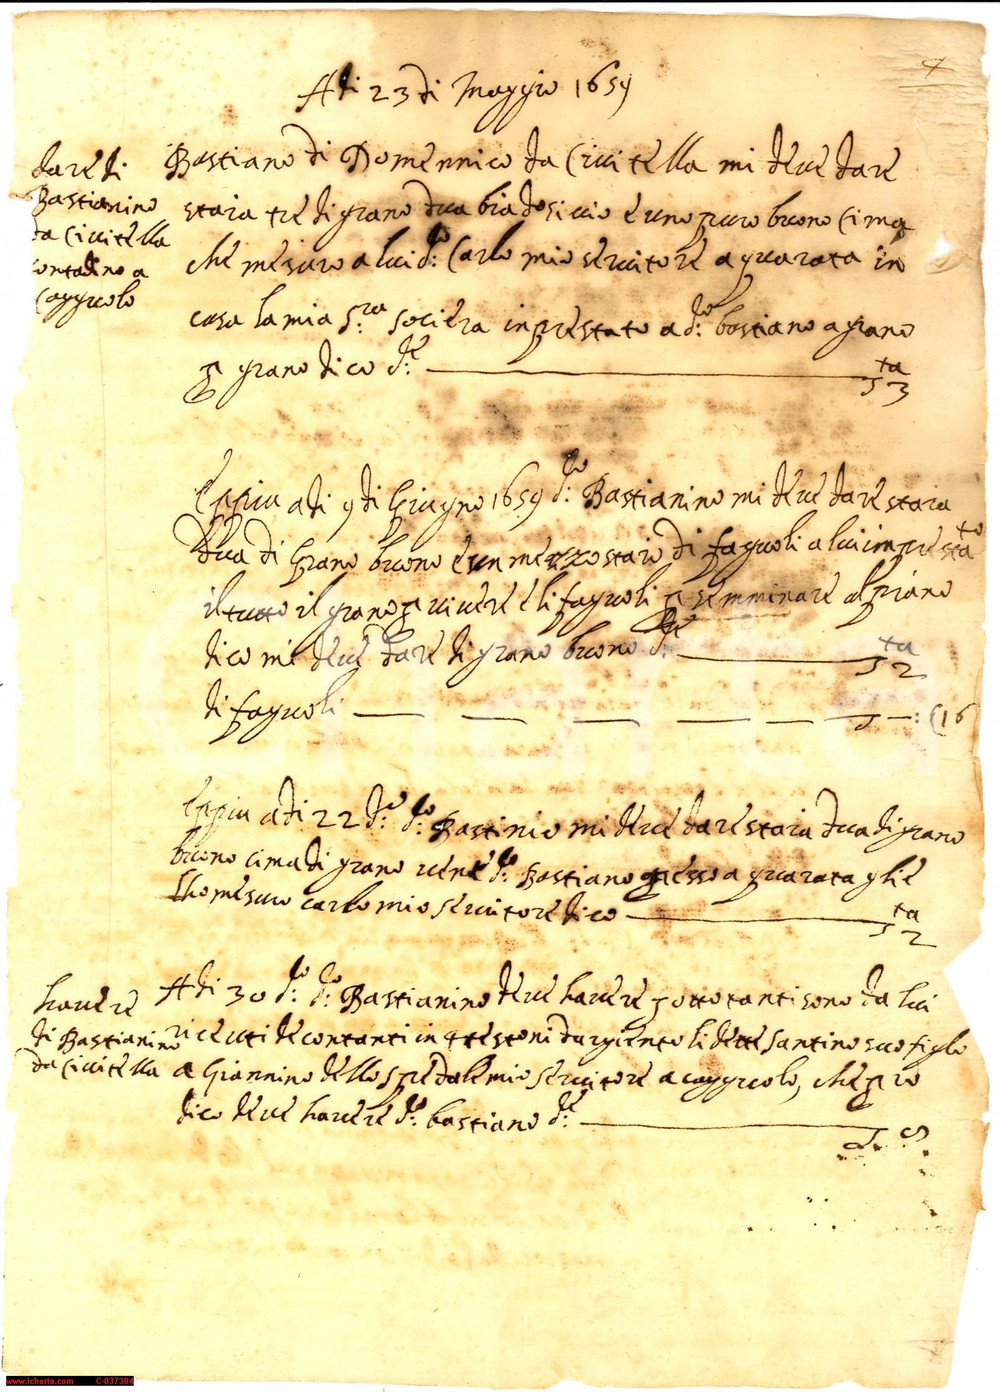 Adi 23 di Maggio 1659
dare di
Bastianino
da Civitella
contadino a
Capgvolo
Bastiano di Domennico da Civitella mi deve dare
staia tre di grano dua bia do e uno puro buono Cima
che mesuro a lui d.o Carlo mio servitore a quarata in
casa la mia s.ra sociera inprestato a d.o bastiano a grano
p grano dico d.e sta 3
Eppiu adi 9 di Giugno 1659 d.o Bastianino mi deve dare staia
dua di Grano buono e un mezzo staio di fagvoli a lui imprestato
il tutto il grano p vivere e li fagvoli p semminare al piano
dico mi deve dare di grano buono d.e sta 2
di fagvoli s — : (16
Eppiu adi 22 d.o d.o Bastinio mi deve dare staia dua di grano
buono cima di grano d.o Bastiano a quarata glie
lho mesuro carlo mio servitore dico sta 2
havere
di Bastianino
da Civitella
Adi 30 d.o d.o Bastianino deve havere p otto tanti sono da lui
riceuti de contanti in testoni dargiento li dette Santino suo figlo
a Giannino dello spedale mio servitore a capgvolo, che p io
dico deve havere d.o bastiano d.e
www.icharta.com C-037384